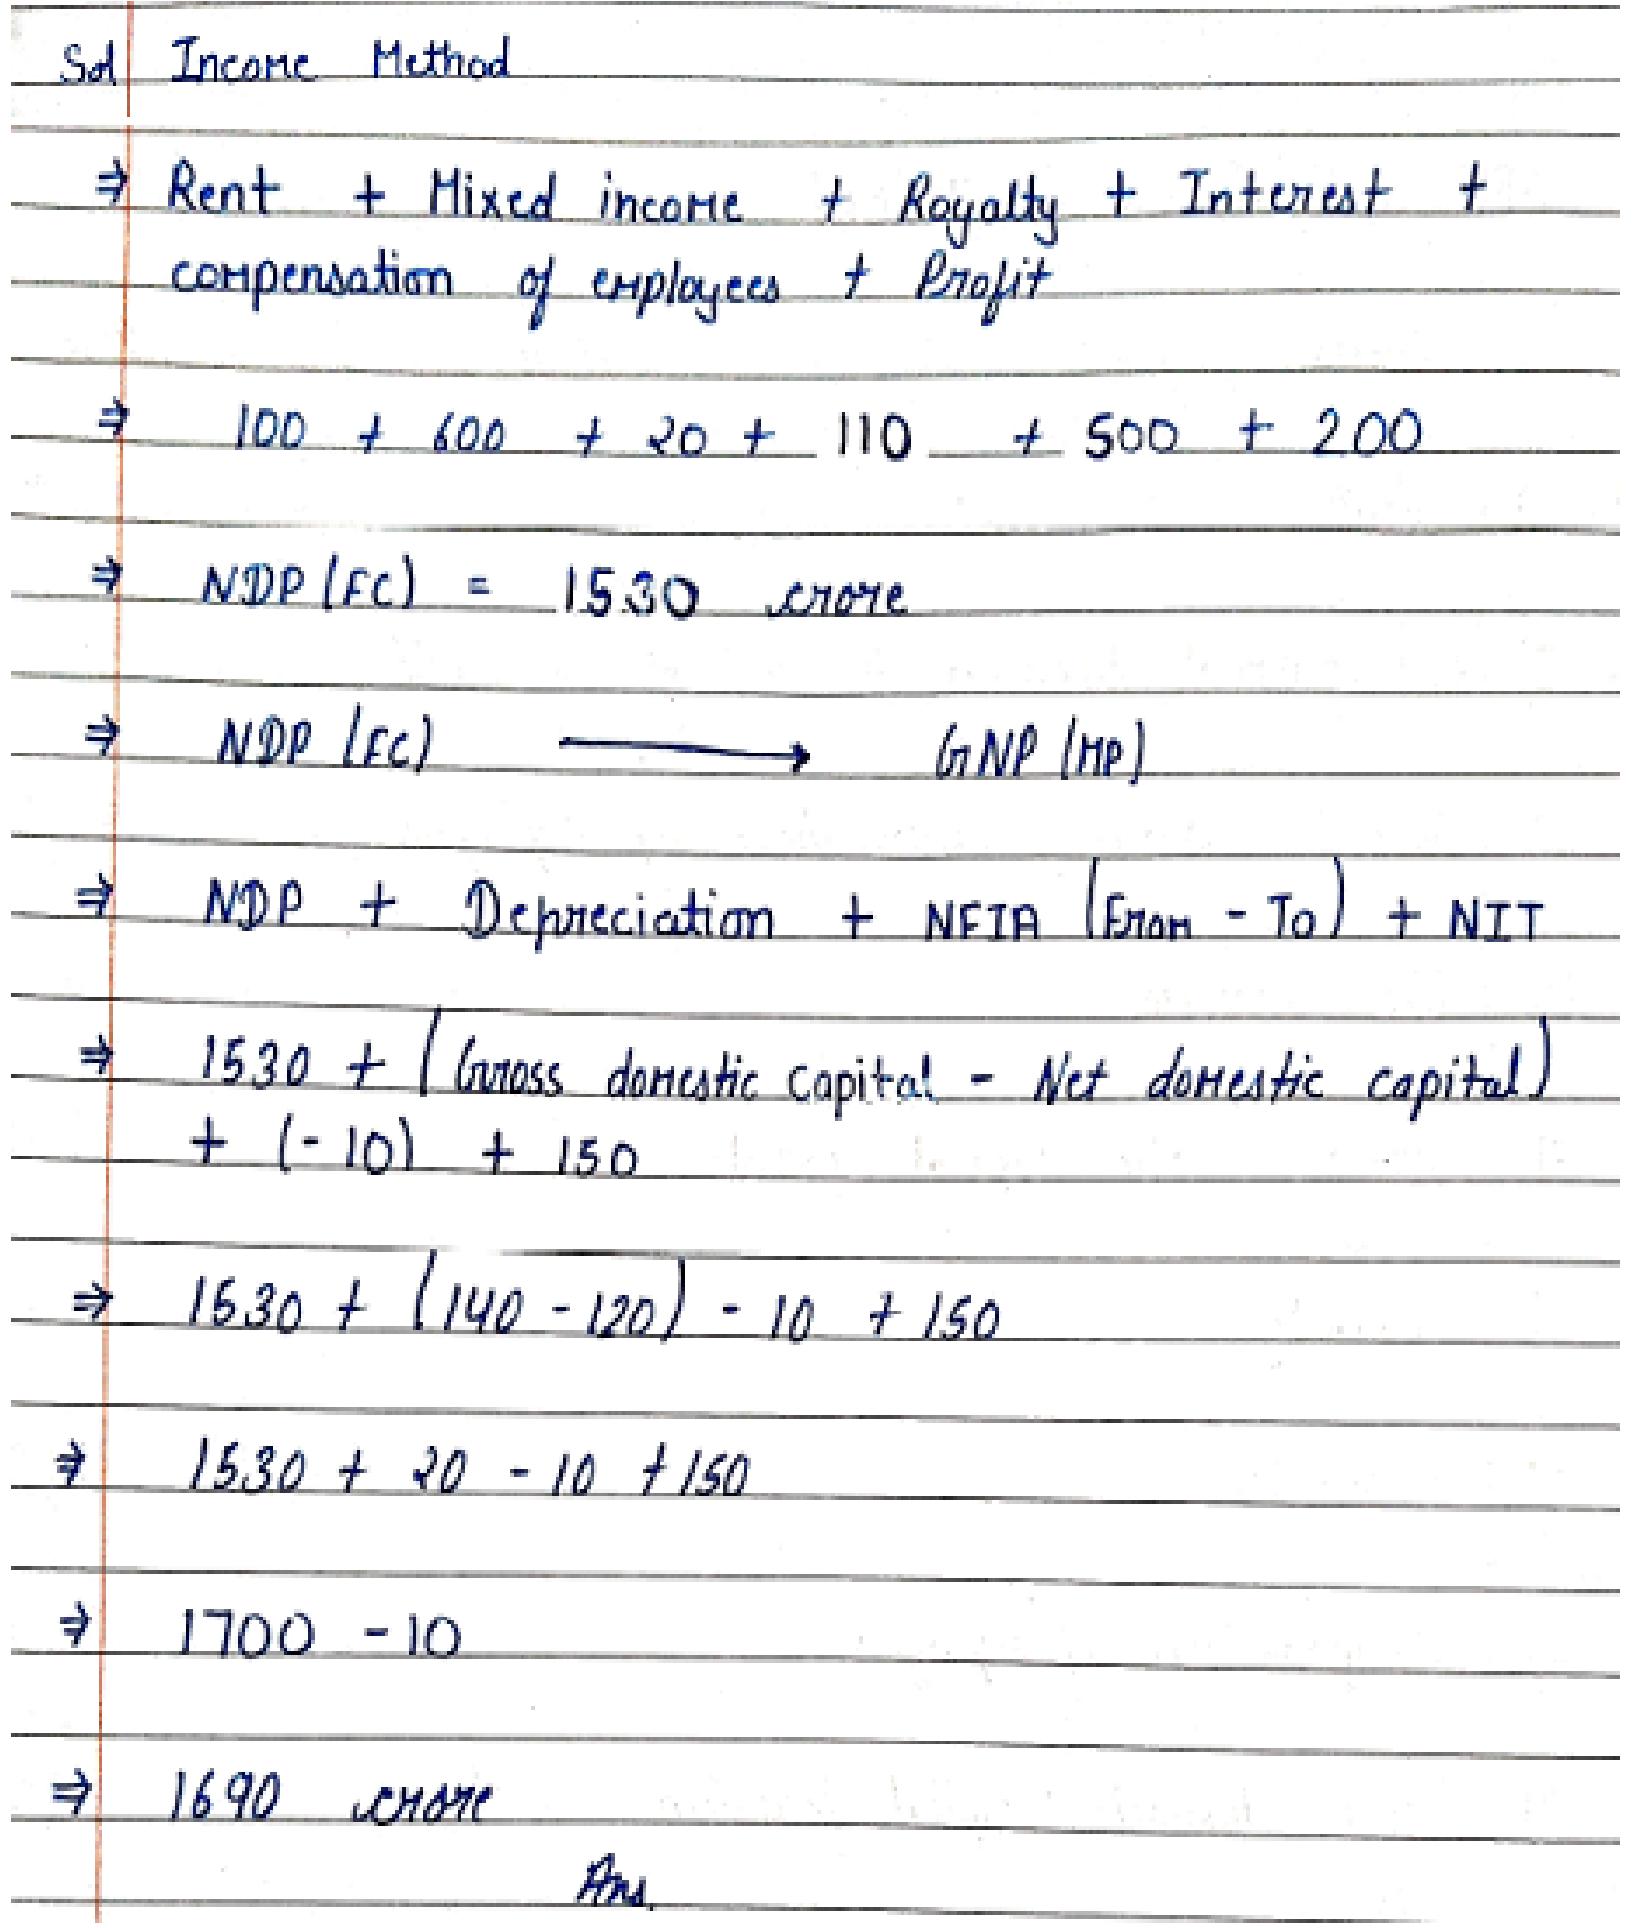 Sol Income Method
⇒ Rent + Mixed income + Royalty + Interest +
compensation of employees + Profit
⇒ 100 + 600 + 20 + 110 + 500 + 200
⇒ NDP (FC) = 1530 crore
⇒ NDP (FC) ⟶ GNP (MP)
⇒ NDP + Depreciation + NFIA (From - To) + NIT
⇒ 1530 + (Gross domestic capital - Net domestic capital)
+ (-10) + 150
⇒ 1530 + (140 - 120) - 10 + 150
⇒ 1530 + 20 - 10 + 150
⇒ 1700 - 10
⇒ 1690 crore
Ans.